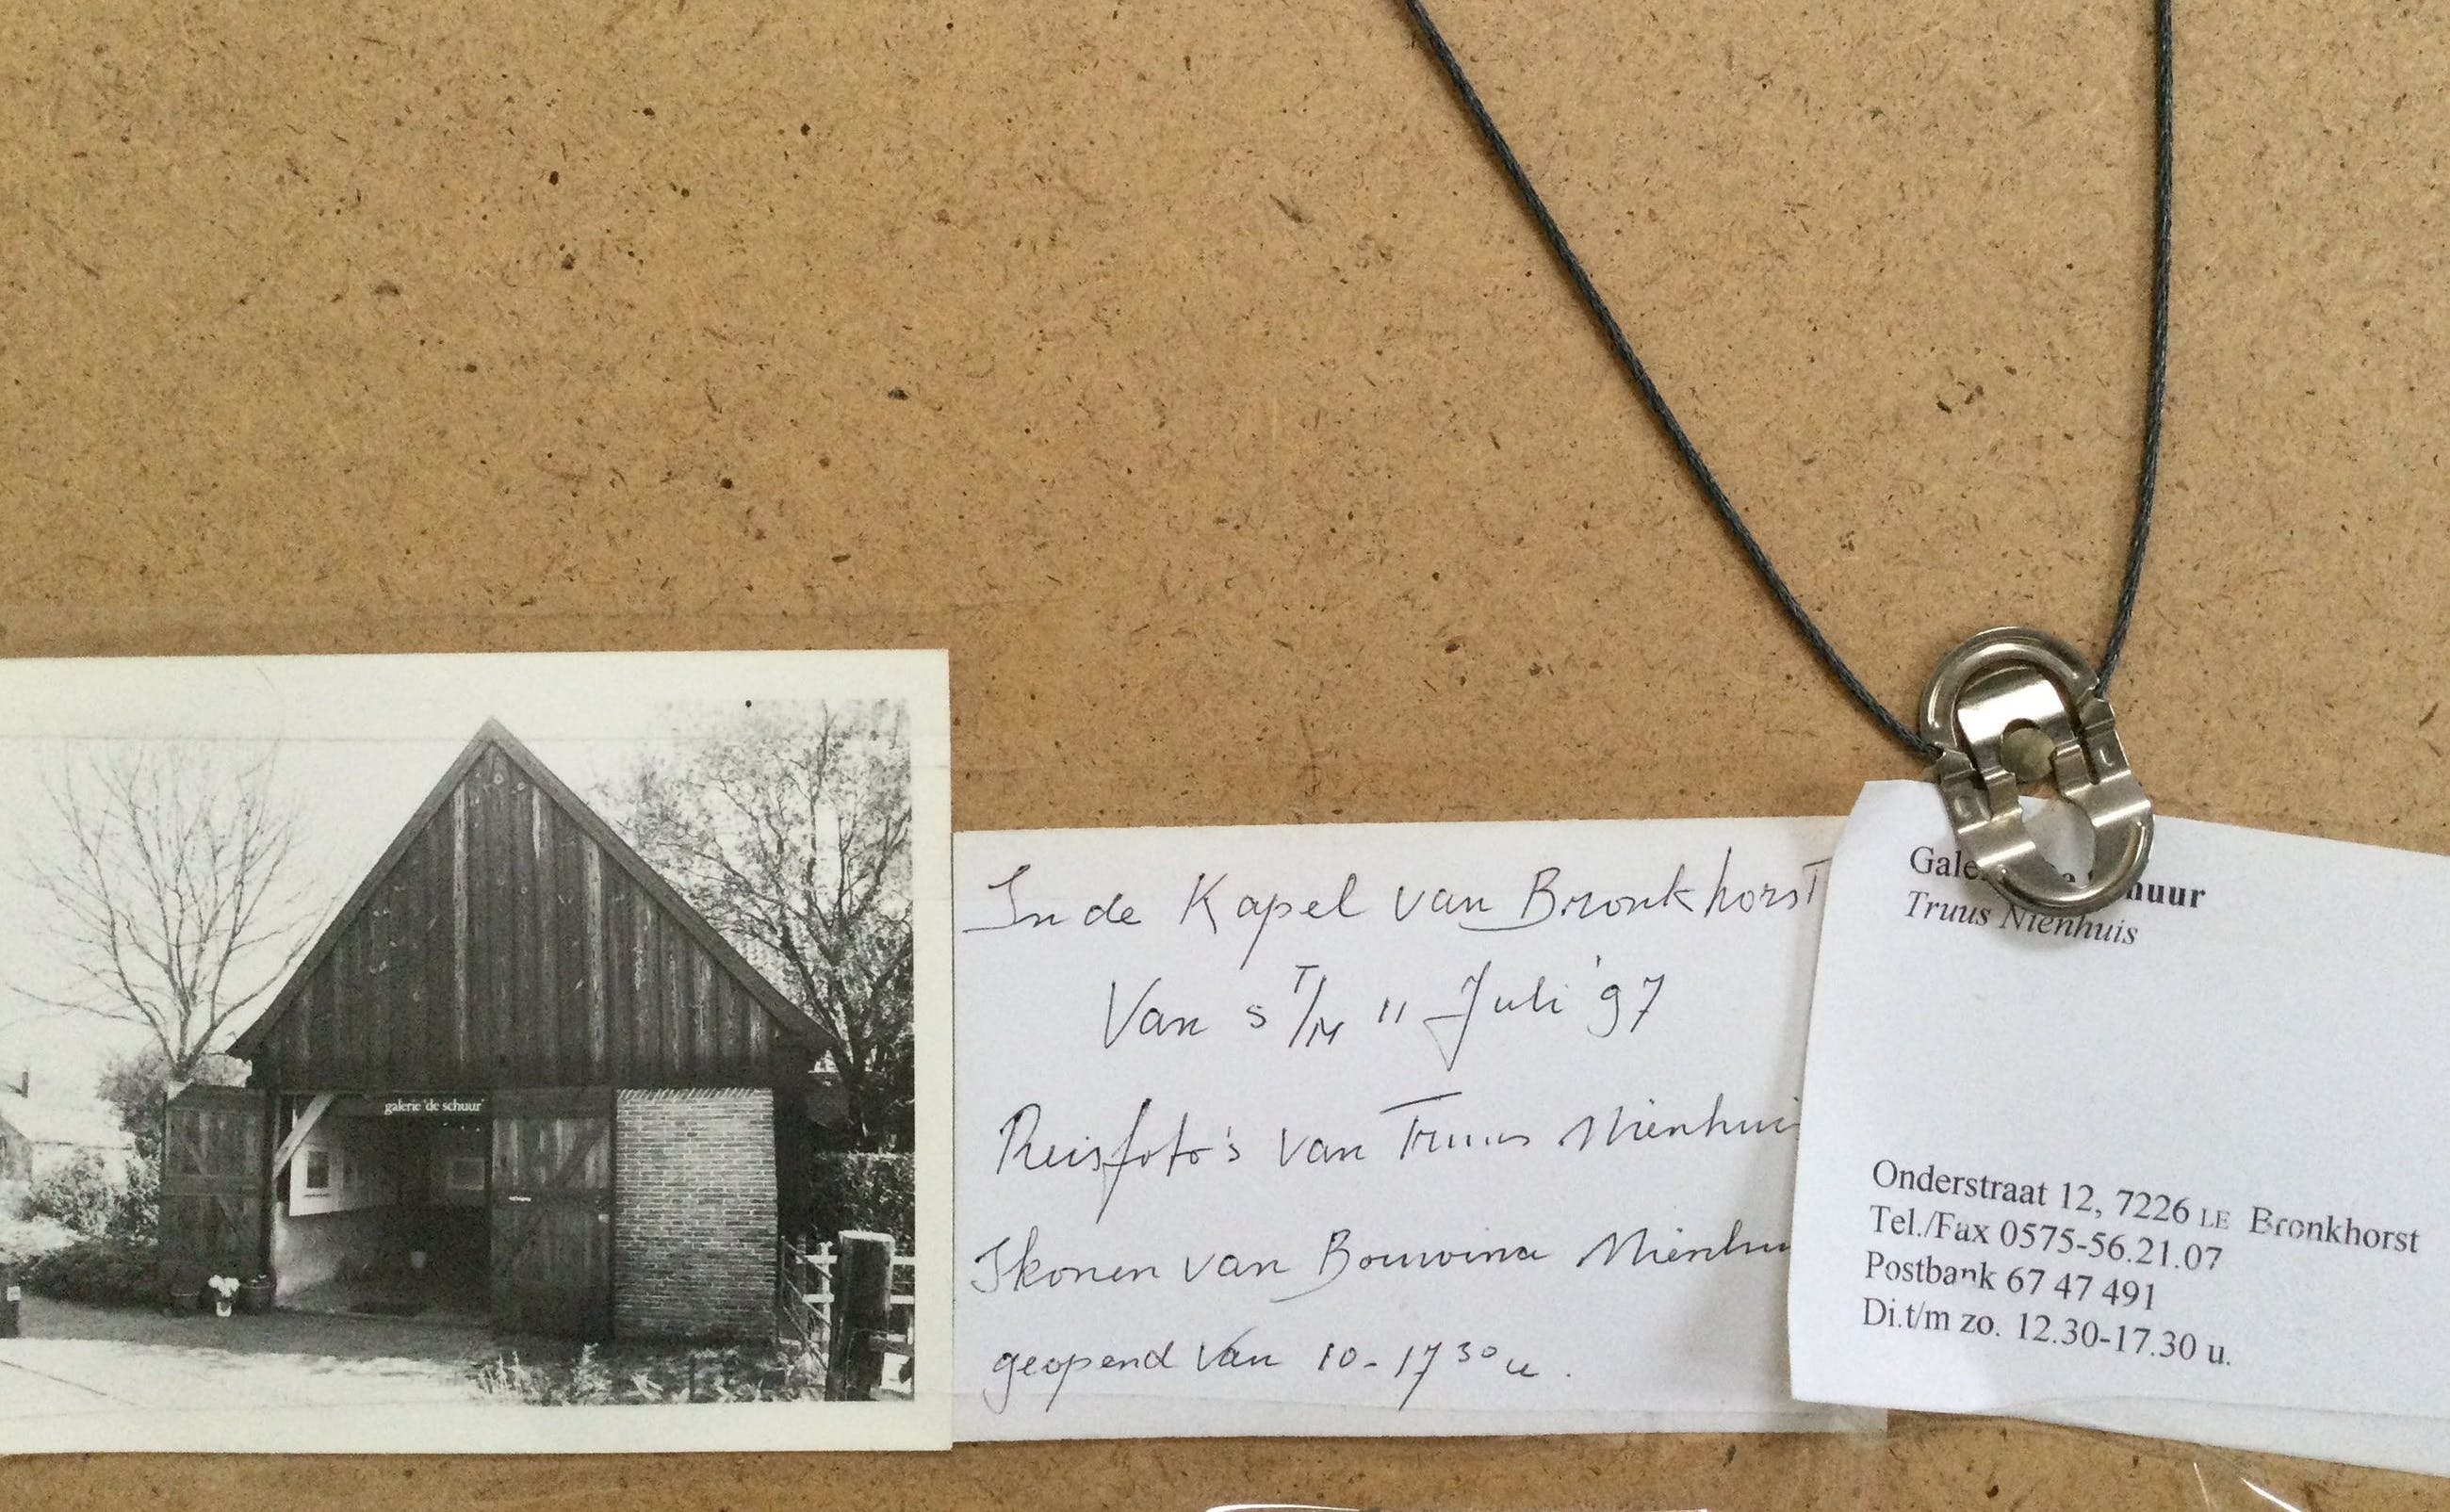 galerie 'de schuur'
In de Kapel van Bronkhorst
Van 5 T/M 11 Juli '97
Reisfoto's van Truus Nienhui
Ikonen van Bouwina Nienhu
geopend van 10-17 30 u.
Gale e huur
Truus Nienhuis
Onderstraat 12, 7226 LE Bronkhorst
Tel./Fax 0575-56.21.07
Postbank 67 47 491
Di.t/m zo. 12.30-17.30 u.